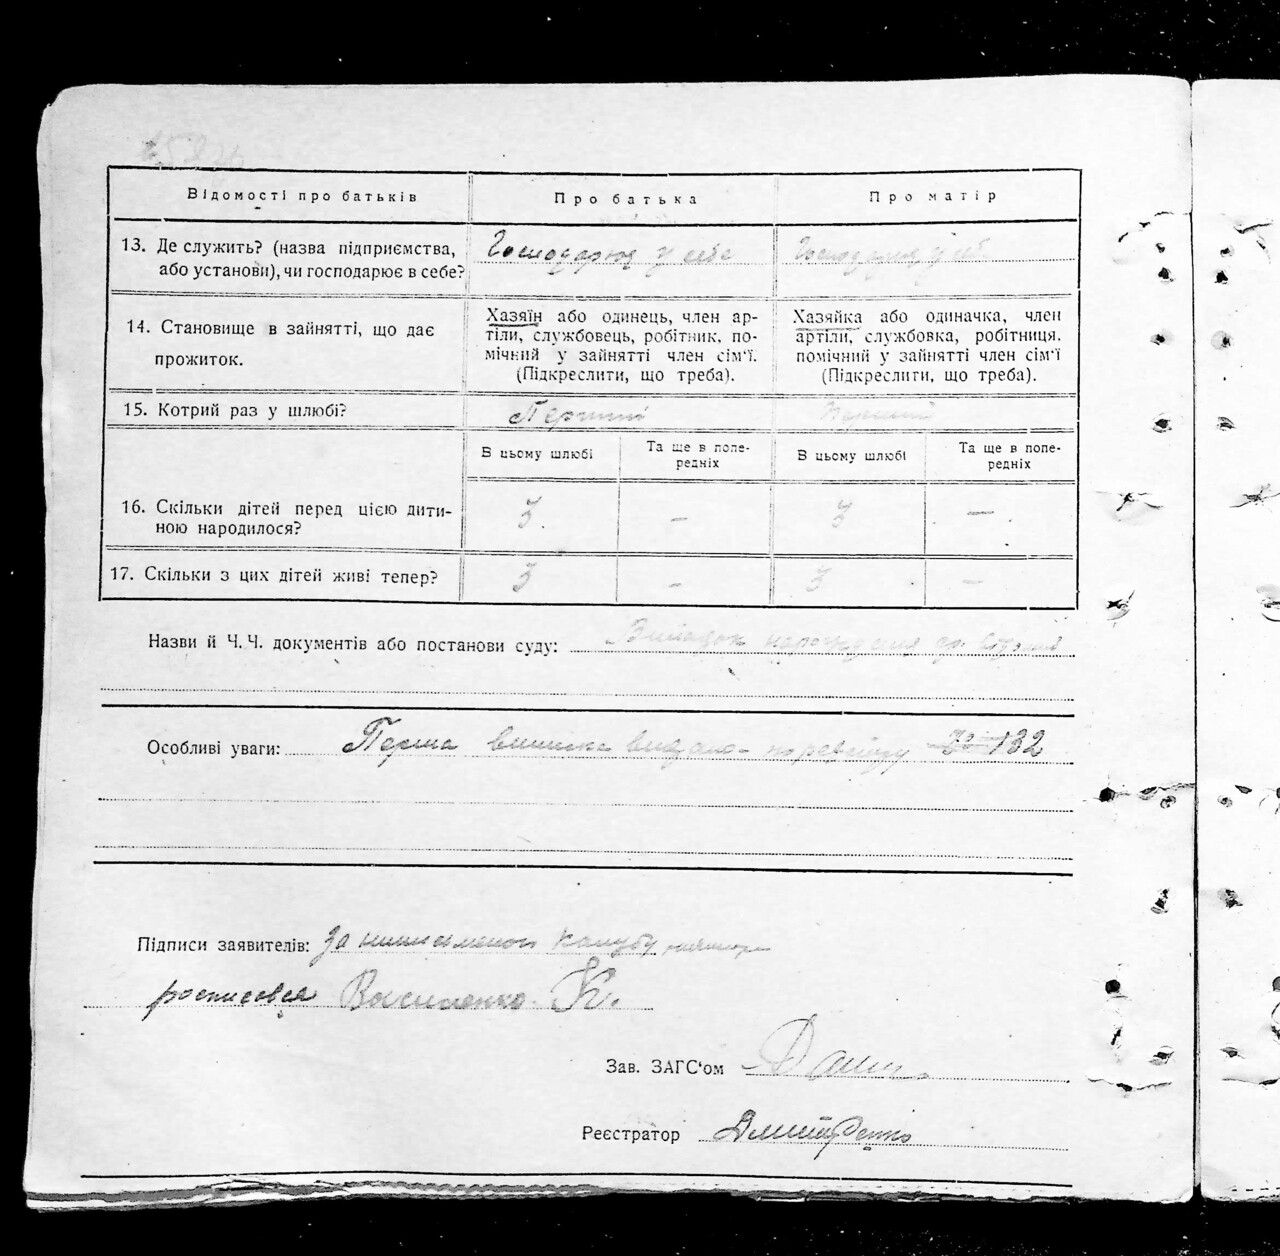 Відомості про батьків
Про батька
Про матір
13. Де служить? (назва підприємства,
або установи), чи господарює в себе?
Господарює у себе
Господарює у себе
14. Становище в зайнятті, що дає
прожиток.
Хазяїн або одинець, член ар-
тіли, службовець, робітник, по-
мічний у зайнятті член сім'ї.
(Підкреслити, що треба).
Хазяйка або одиначка, член
артіли, службовка, робітниця.
помічний у зайнятті член сім'ї
(Підкреслити, що треба).
15. Котрий раз у шлюбі?
Перший
Перший
В цьому шлюбі
Та ще в попе-
редніх
В цьому шлюбі
Та ще в попе-
редніх
16. Скільки дітей перед цією дити-
ною народилося?
3
–
3
–
17. Скільки з цих дітей живі тепер?
3
–
3
–
Назви й Ч. Ч. документів або постанови суду:
Особливі уваги: Перша виписка видана по реєстру 132
Підписи заявителів: За
росписався Василенко К.
Зав. ЗАГС'ом
Реєстратор Дмитренко